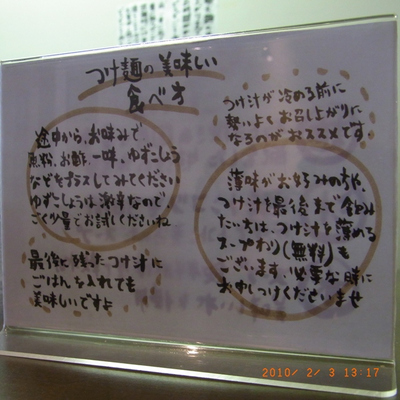 つけ麺の美味しい
食べ方
つけ汁が冷める前に
勢いよくお召し上がりに
なるのがおススメです
途中から、お味みで
魚粉、お酢、一味、ゆずこしょう
などをプラスしてみてください
ゆずこしょうは激辛なので、
ごく少量でお試しくださいね
薄味がお好みの方や、
つけ汁を最後まで飲み
たい方は、つけ汁を薄める
スープわり(無料)も
ございます。必要な時に
お申しつけくださいませ
最後に残ったつけ汁に
ごはんを入れても
美味しいですよ
2010/ 2/ 3 13:17